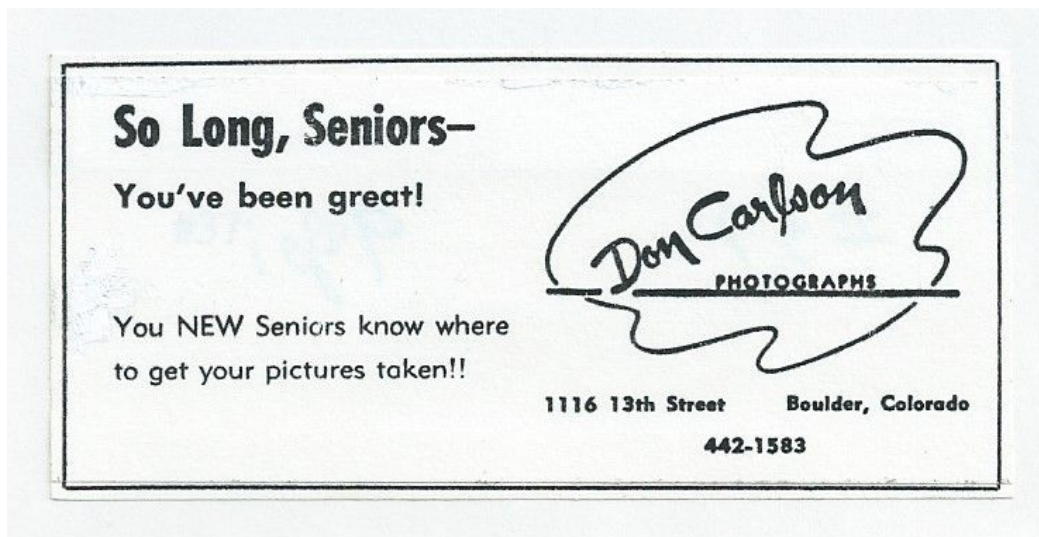 So Long, Seniors—
You've been great!
You NEW Seniors know where
to get your pictures taken!!
Don Carlson
PHOTOGRAPHS
1116 13th Street Boulder, Colorado
442-1583